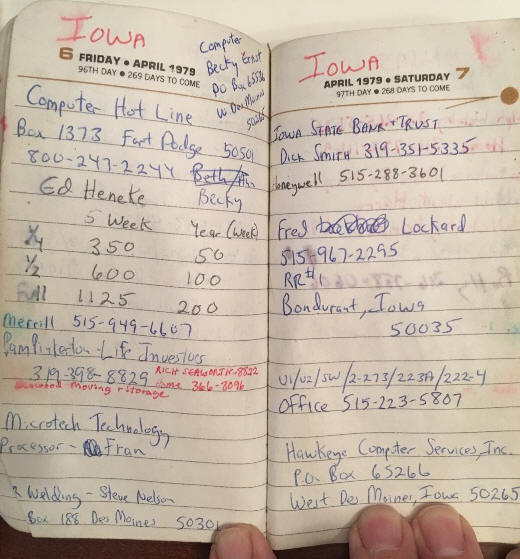 Iowa
6 FRIDAY • APRIL 1979
96TH DAY • 269 DAYS TO COME
Computer
Becky Ernst
PO Box 65536
W. Des Moines
50265
Computer Hot Line
Box 1373 Fort Dodge 50501
800-247-2244 Beth
Ed Heneke Becky
5 Week Year (week)
1/4 350 50
1/2 600 100
Full 1125 200
Merrill 515-949-6607
Pam Pinkerton - Life Investors
319-398-8829 RICH 8822
moving & storage home 366-3096
Microtech Technology
Processor - Fran
Welding - Steve Nelson
Box 188 Des Moines 50301
Iowa
APRIL 1979 • SATURDAY 7
97TH DAY • 268 DAYS TO COME
IOWA STATE BANK & TRUST
Dick Smith 319-351-5335
Honeywell 515-288-3601
Fred Lockard
515-967-2295
RR#1
Bondurant, Iowa
50035
U1/U2/SW/2-273/223A/222-4
Office 515-223-5807
Hawkeye Computer Services, Inc.
P.O. Box 65266
West Des Moines, Iowa 50265